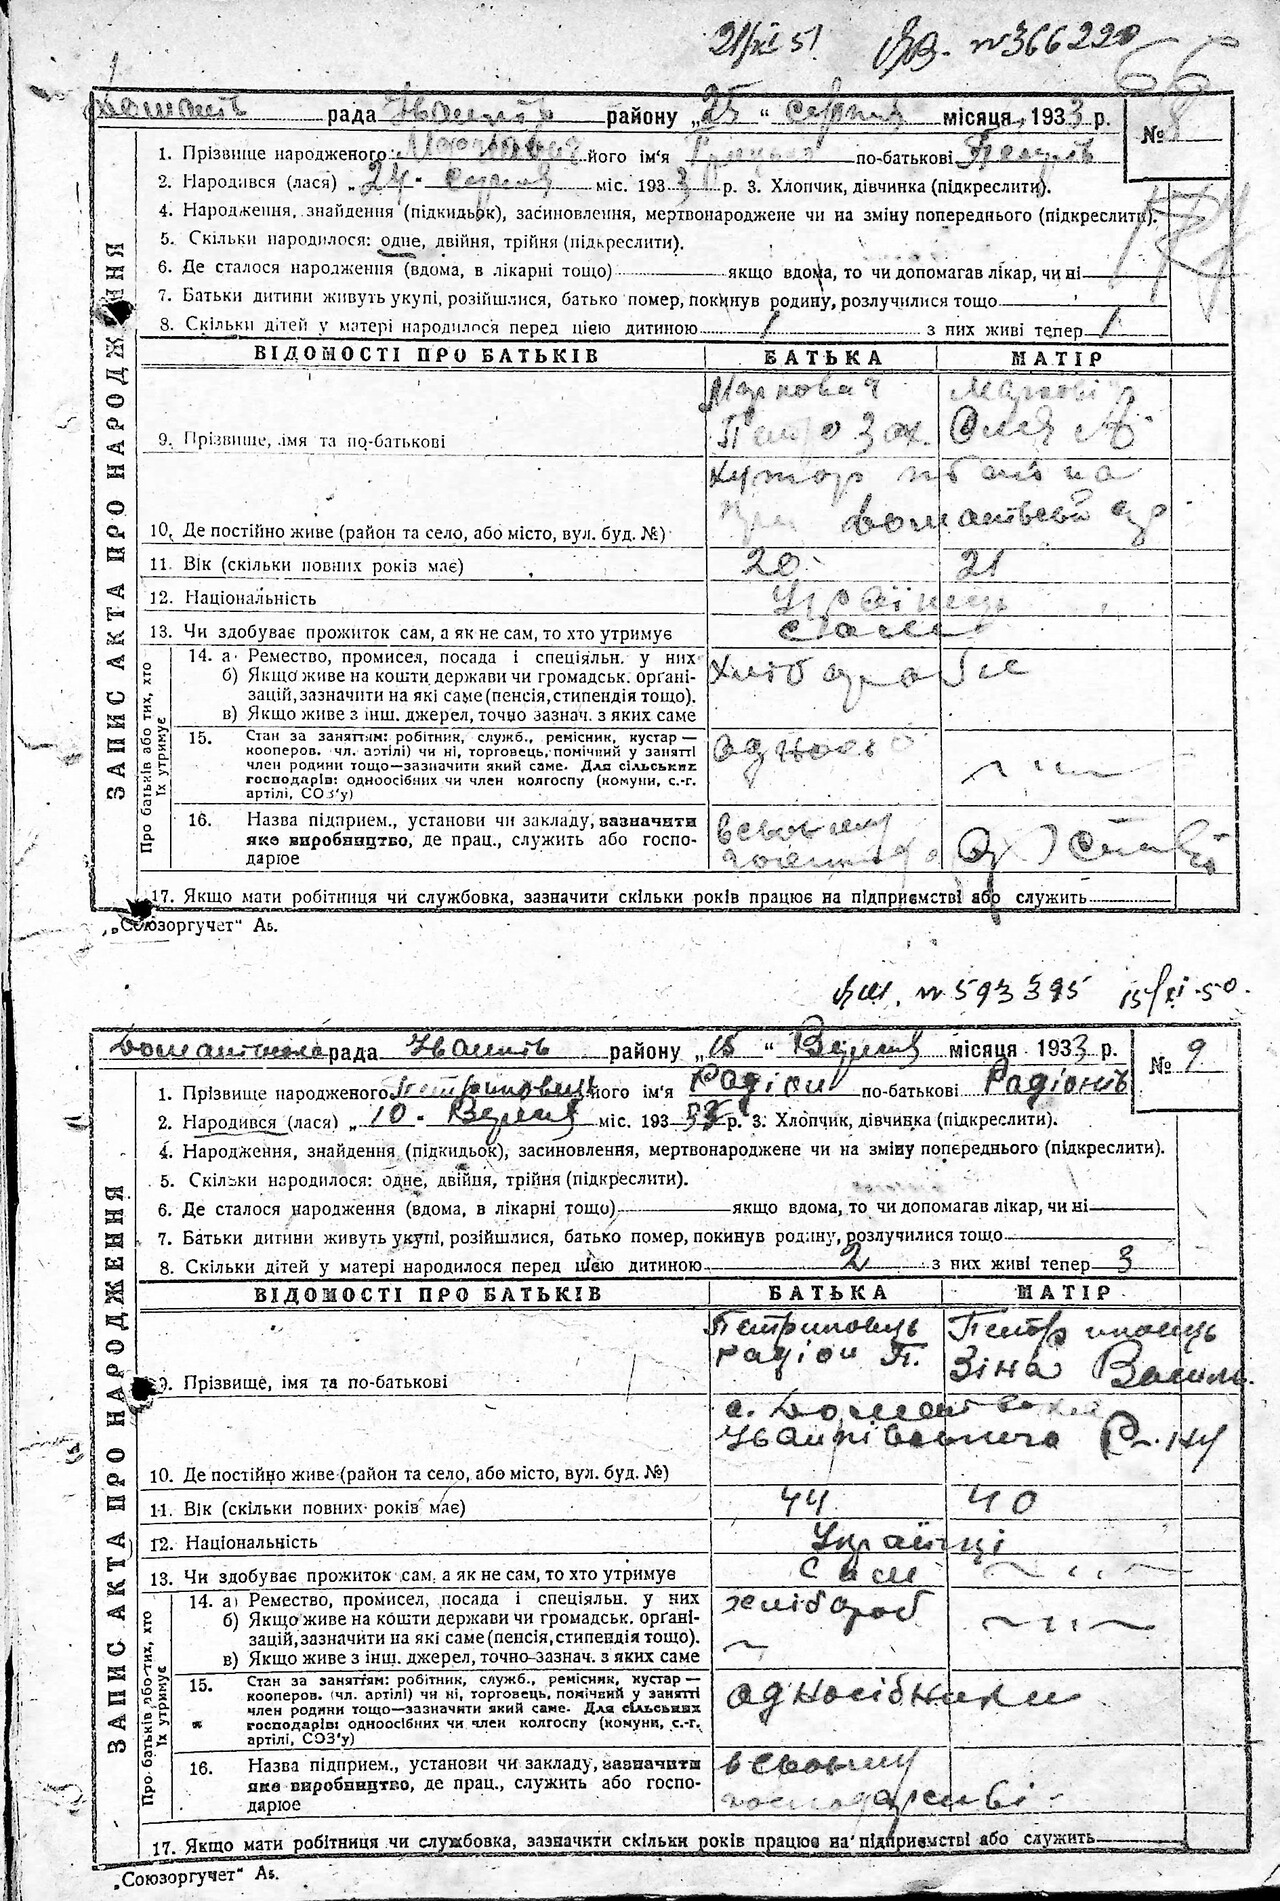 21/XI 51 № 366220
66
рада району „25“ серпня місяця, 1933 р.
№ 8
1. Прізвище народженого його ім'я по-батькові
2. Народився (лася) „24“ серпня міс. 1933 р. 3. Хлопчик, дівчинка (підкреслити).
4. Народження, знайдення (підкидьок), засиновлення, мертвонароджене чи на зміну попереднього (підкреслити).
5. Скільки народилося: одне, двійня, трійня (підкреслити).
6. Де сталося народження (вдома, в лікарні тощо) якщо вдома, то чи допомагав лікар, чи ні
7. Батьки дитини живуть укупі, розійшлися, батько помер, покинув родину, розлучилися тощо
8. Скільки дітей у матері народилося перед цією дитиною 1 з них живі тепер 1
ЗАПИС АКТА ПРО НАРОДЖЕННЯ
ВІДОМОСТІ ПРО БАТЬКІВ БАТЬКА МАТІР
Маркович Маркович
9. Прізвище, імя та по-батькові Петро Зах.
хутор
10. Де постійно живе (район та село, або місто, вул. буд. №)
11. Вік (скільки повних років має) 20 21
12. Національність Українець
13. Чи здобуває прожиток сам, а як не сам, то хто утримує сами
Про батьків або тих, хто їх утримує
14. а) Ремество, промисел, посада і спеціяльн. у них хлібороби
б) Якщо живе на кошти держави чи громадськ. орґані-
зацій, зазначити на які саме (пенсія, стипендія тощо).
в) Якщо живе з інш. джерел, точно зазнач. з яких саме
15. Стан за заняттям: робітник, служб., ремісник, кустар —
кооперов. (чл. артілі) чи ні, торговець, помічний у занятті
член родини тощо—зазначити який саме. Для сільських
господарів: одноосібних чи член колгоспу (комуни, с.-г.
артілі, СОЗ'у)
16. Назва підприєм., установи чи закладу, зазначити в своєму
яке виробництво, де прац., служить або госпо-
дарює
17. Якщо мати робітниця чи службовка, зазначити скільки років працює на підприємстві або служить
„Союзоргучет“ А5.
№ 593395 15/XI-50.
рада району „15“ Вересня місяця 1933 р.
№ 9
1. Прізвище народженого Петриповець його ім'я Радіон по-батькові Радіонів
2. Народився (лася) „10“ Вересня міс. 193 р. 3. Хлопчик, дівчинка (підкреслити).
4. Народження, знайдення (підкидьок), засиновлення, мертвонароджене чи на зміну попереднього (підкреслити).
5. Скільки народилося: одне, двійня, трійня (підкреслити).
6. Де сталося народження (вдома, в лікарні тощо) якщо вдома, то чи допомагав лікар, чи ні
7. Батьки дитини живуть укупі, розійшлися, батько помер, покинув родину, розлучилися тощо
8. Скільки дітей у матері народилося перед цією дитиною 2 з них живі тепер 3
ЗАПИС АКТА ПРО НАРОДЖЕННЯ
ВІДОМОСТІ ПРО БАТЬКІВ БАТЬКА МАТІР
Петриповець Петриповець
Радіон П. Зіна Василь.
9. Прізвище, імя та по-батькові
с.
10. Де постійно живе (район та село, або місто, вул. буд. №)
11. Вік (скільки повних років має) 44 40
12. Національність Українці
13. Чи здобуває прожиток сам, а як не сам, то хто утримує Сам
Про батьків або тих, хто їх утримує
14. а) Ремество, промисел, посада і спеціяльн. у них хлібороб
б) Якщо живе на кошти держави чи громадськ. орґані-
зацій, зазначити на які саме (пенсія, стипендія тощо).
в) Якщо живе з інш. джерел, точно зазнач. з яких саме
15. Стан за заняттям: робітник, служб., ремісник, кустар —
кооперов. (чл. артілі) чи ні, торговець, помічний у занятті
член родини тощо—зазначити який саме. Для сільських
господарів: одноосібних чи член колгоспу (комуни, с.-г.
артілі, СОЗ'у)
односібники
16. Назва підприєм., установи чи закладу, зазначити в своєму
яке виробництво, де прац., служить або госпо- господарстві
дарює
17. Якщо мати робітниця чи службовка, зазначити скільки років працює на підприємстві або служить
„Союзоргучет“ А5.